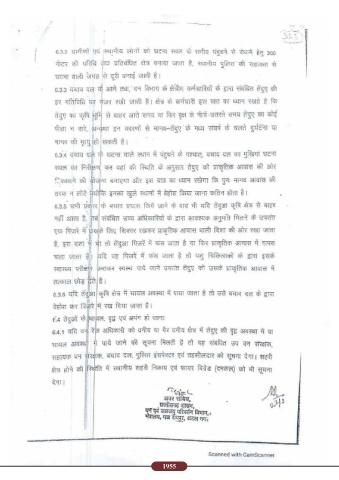 6.3.2 ग्रामीणों एवं स्थानीय लोगों को घटना स्थल के समीप पंहुचने से रोकने हेतु 300
मीटर की परिधि तक प्रतिबंधित क्षेत्र बनाया जाता है, स्थानीय पुलिस की सहायता से
घटना वाली जगह से दूरी बनाई जाती है।
6.3.3 बचाव दल के आने तक, वन विभाग के क्षेत्रिय कर्मचारियों के द्वारा संबंधित तेंदुए की
हर गतिविधि पर नजर रखी जाती है। क्षेत्र के कर्मचारी इस बात का ध्यान रखते है कि
तेंदुए का कृषि भूमि से बाहर आते समय या फिर वृक्ष से नीचे उतरते समय तेंदुए का कोई
पीछा न करे, अन्यथा इन कारणों से मानव-तेंदुए के मध्य संघर्ष के चलते दुर्घटना या
मानव की मृत्यु हो सकती है।
6.3.4 बचाव दल के घटना वाले स्थान में पंहुचने के पश्चात्, बचाव दल का मुखिया घटना
स्थल का निरीक्षण कर वहां की स्थिति के अनुसार तेंदुए को उसके प्राकृतिक आवास की ओर
निकालने की योजना बनाएगा और इस बात का ध्यान रखेगा कि पुनः मानव आवास की
तरफ न लौटे क्योंकि इनका खुले स्थानों में बेहोश किया जाना कठिन होता है।
6.3.5 सभी प्रकार के बचाव प्रयास किये जाने के बाद भी यदि तेंदुआ कृषि क्षेत्र से बाहर
नहीं आता है, तब संबंधित उच्च अधिकारियों के द्वारा आवश्यक अनुमति मिलने के उपरांत
एक पिंजरे में उसके लिए शिकार रखकर प्राकृतिक आवास वाली दिशा की ओर रखा जाता
है, इस दशा में भी तो तेंदुआ पिंजरें में फंस जाता है या फिर प्राकृतिक आवास में वापस
चला जाता है। यदि वह पिंजरें में फंस जाता है तो पशु चिकित्सकों के द्वारा इसके
स्वास्थ्य परीक्षण उपरांत स्वस्थ पाये जाने उपरांत तेंदुए को उसके प्राकृतिक आवास में
तत्काल छोड़ देते है।
6.3.6 यदि तेंदुआ कृषि क्षेत्र में घायल अवस्था में पाया जाता है तो उसे बचाव दल के द्वारा
बेहोश कर पिंजरे में रख दिया जाता है।
6.4 तेंदुओं के घायल, वृद्ध एवं अपंग हो जाना
6.4.1 यदि वन रेंज अधिकारी को वनीय या गैर वनीय क्षेत्र में तेंदुए की वृद्ध अवस्था में या
घायल अवस्था में पाये जाने की सूचना मिलती है तो यह संबंधित उप वन संरक्षक,
सहायक वन संरक्षक, बचाव दल, पुलिस इंसपेक्टर एवं तहसीलदार को सूचना देगा। शहरी
क्षेत्र होने की स्थिति में स्थानीय शहरी निकाय एवं फायर ब्रिगेड (दमकल) को भी सूचना
देगा।
अवर सचिव,
छत्तीसगढ़ शासन,
वन एवं जलवायु परिवर्तन विभाग,
मंत्रालय, नवा रायपुर, अटल नगर
1955
Scanned with CamScanner